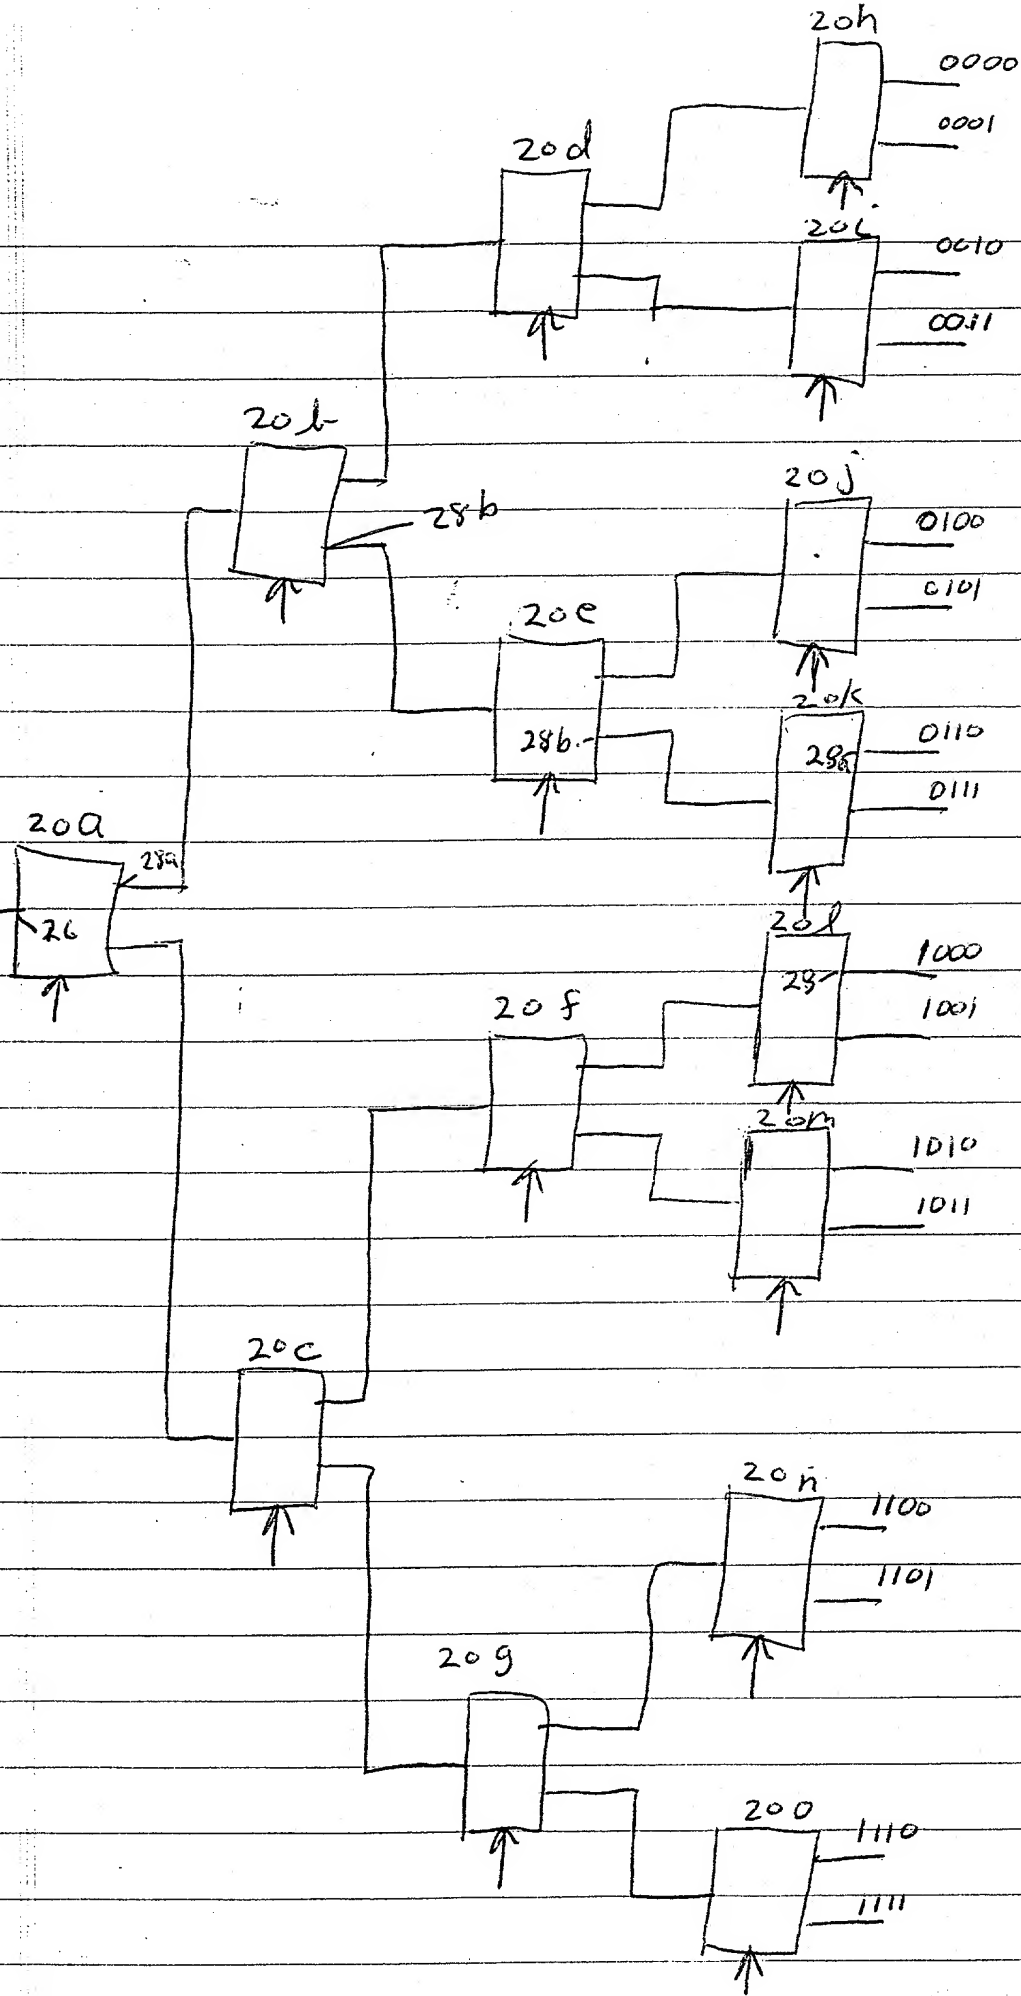 20h
0000
0001
20d
20i
0010
0011
20b
28b
20j
0100
0101
20e
28b
20k
28a
0110
0111
20a
28a
26
20l
28
1000
1001
20f
20m
1010
1011
20c
20n
1100
1101
20g
20o
1110
1111